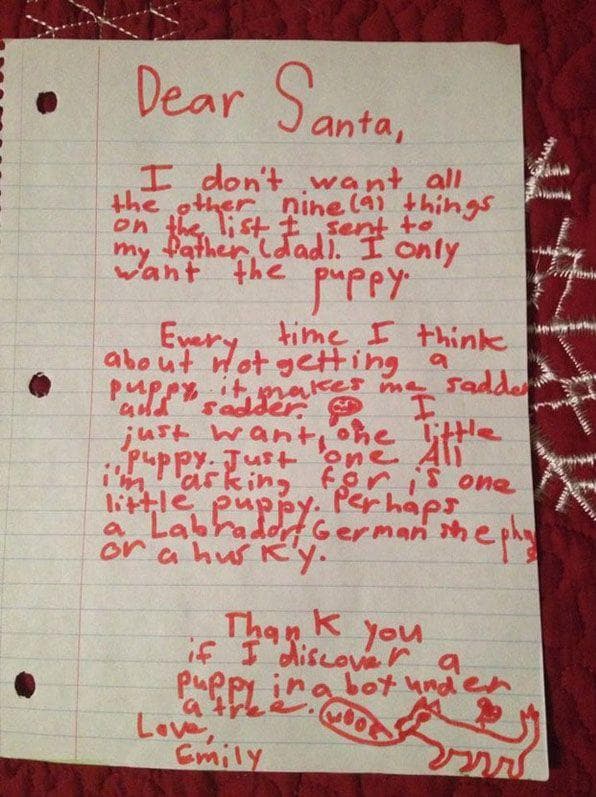 Dear Santa,
I don't want all
the other nine (9) things
on the list I sent to
my father (dad). I only
want the puppy.
Every time I think
about not getting a
puppy, it makes me sadder
and sadder. I
just want, one little
puppy. Just one. All
i'm asking for is one
little puppy. Perhaps
a Labrador, German sheph
or a husk'y.
Thank you
if I discover a
puppy in a bot under
a tree.
woof
Love,
Emily